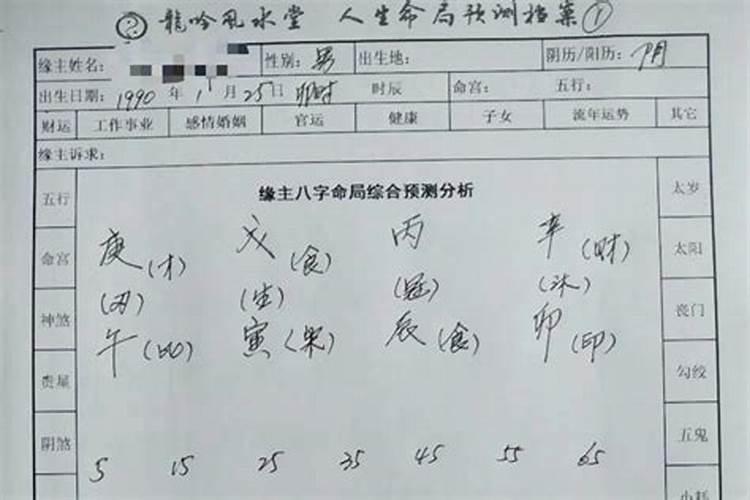 ② 龍吟風水堂 人生命局预测档案①
缘主姓名: 性别: 男 出生地: 阴历/阳历: 阴
出生日期: 1990 年 1 月 25 日 卯时 时辰 命宫: 五行:
财运 工作事业 感情婚姻 官运 健康 子女 流年运势 其它
缘主诉求:
缘主八字命局综合预测分析
五行
命宫
神煞
贵星
阴煞
庚(才) 戊(食) 丙 辛(财)
(刃) (生) (冠) (沐)
午(劫) 寅(枭) 辰(食) 卯(印)
5 15 25 35 45 55 65
太岁
太阳
丧门
勾绞
五鬼
小耗